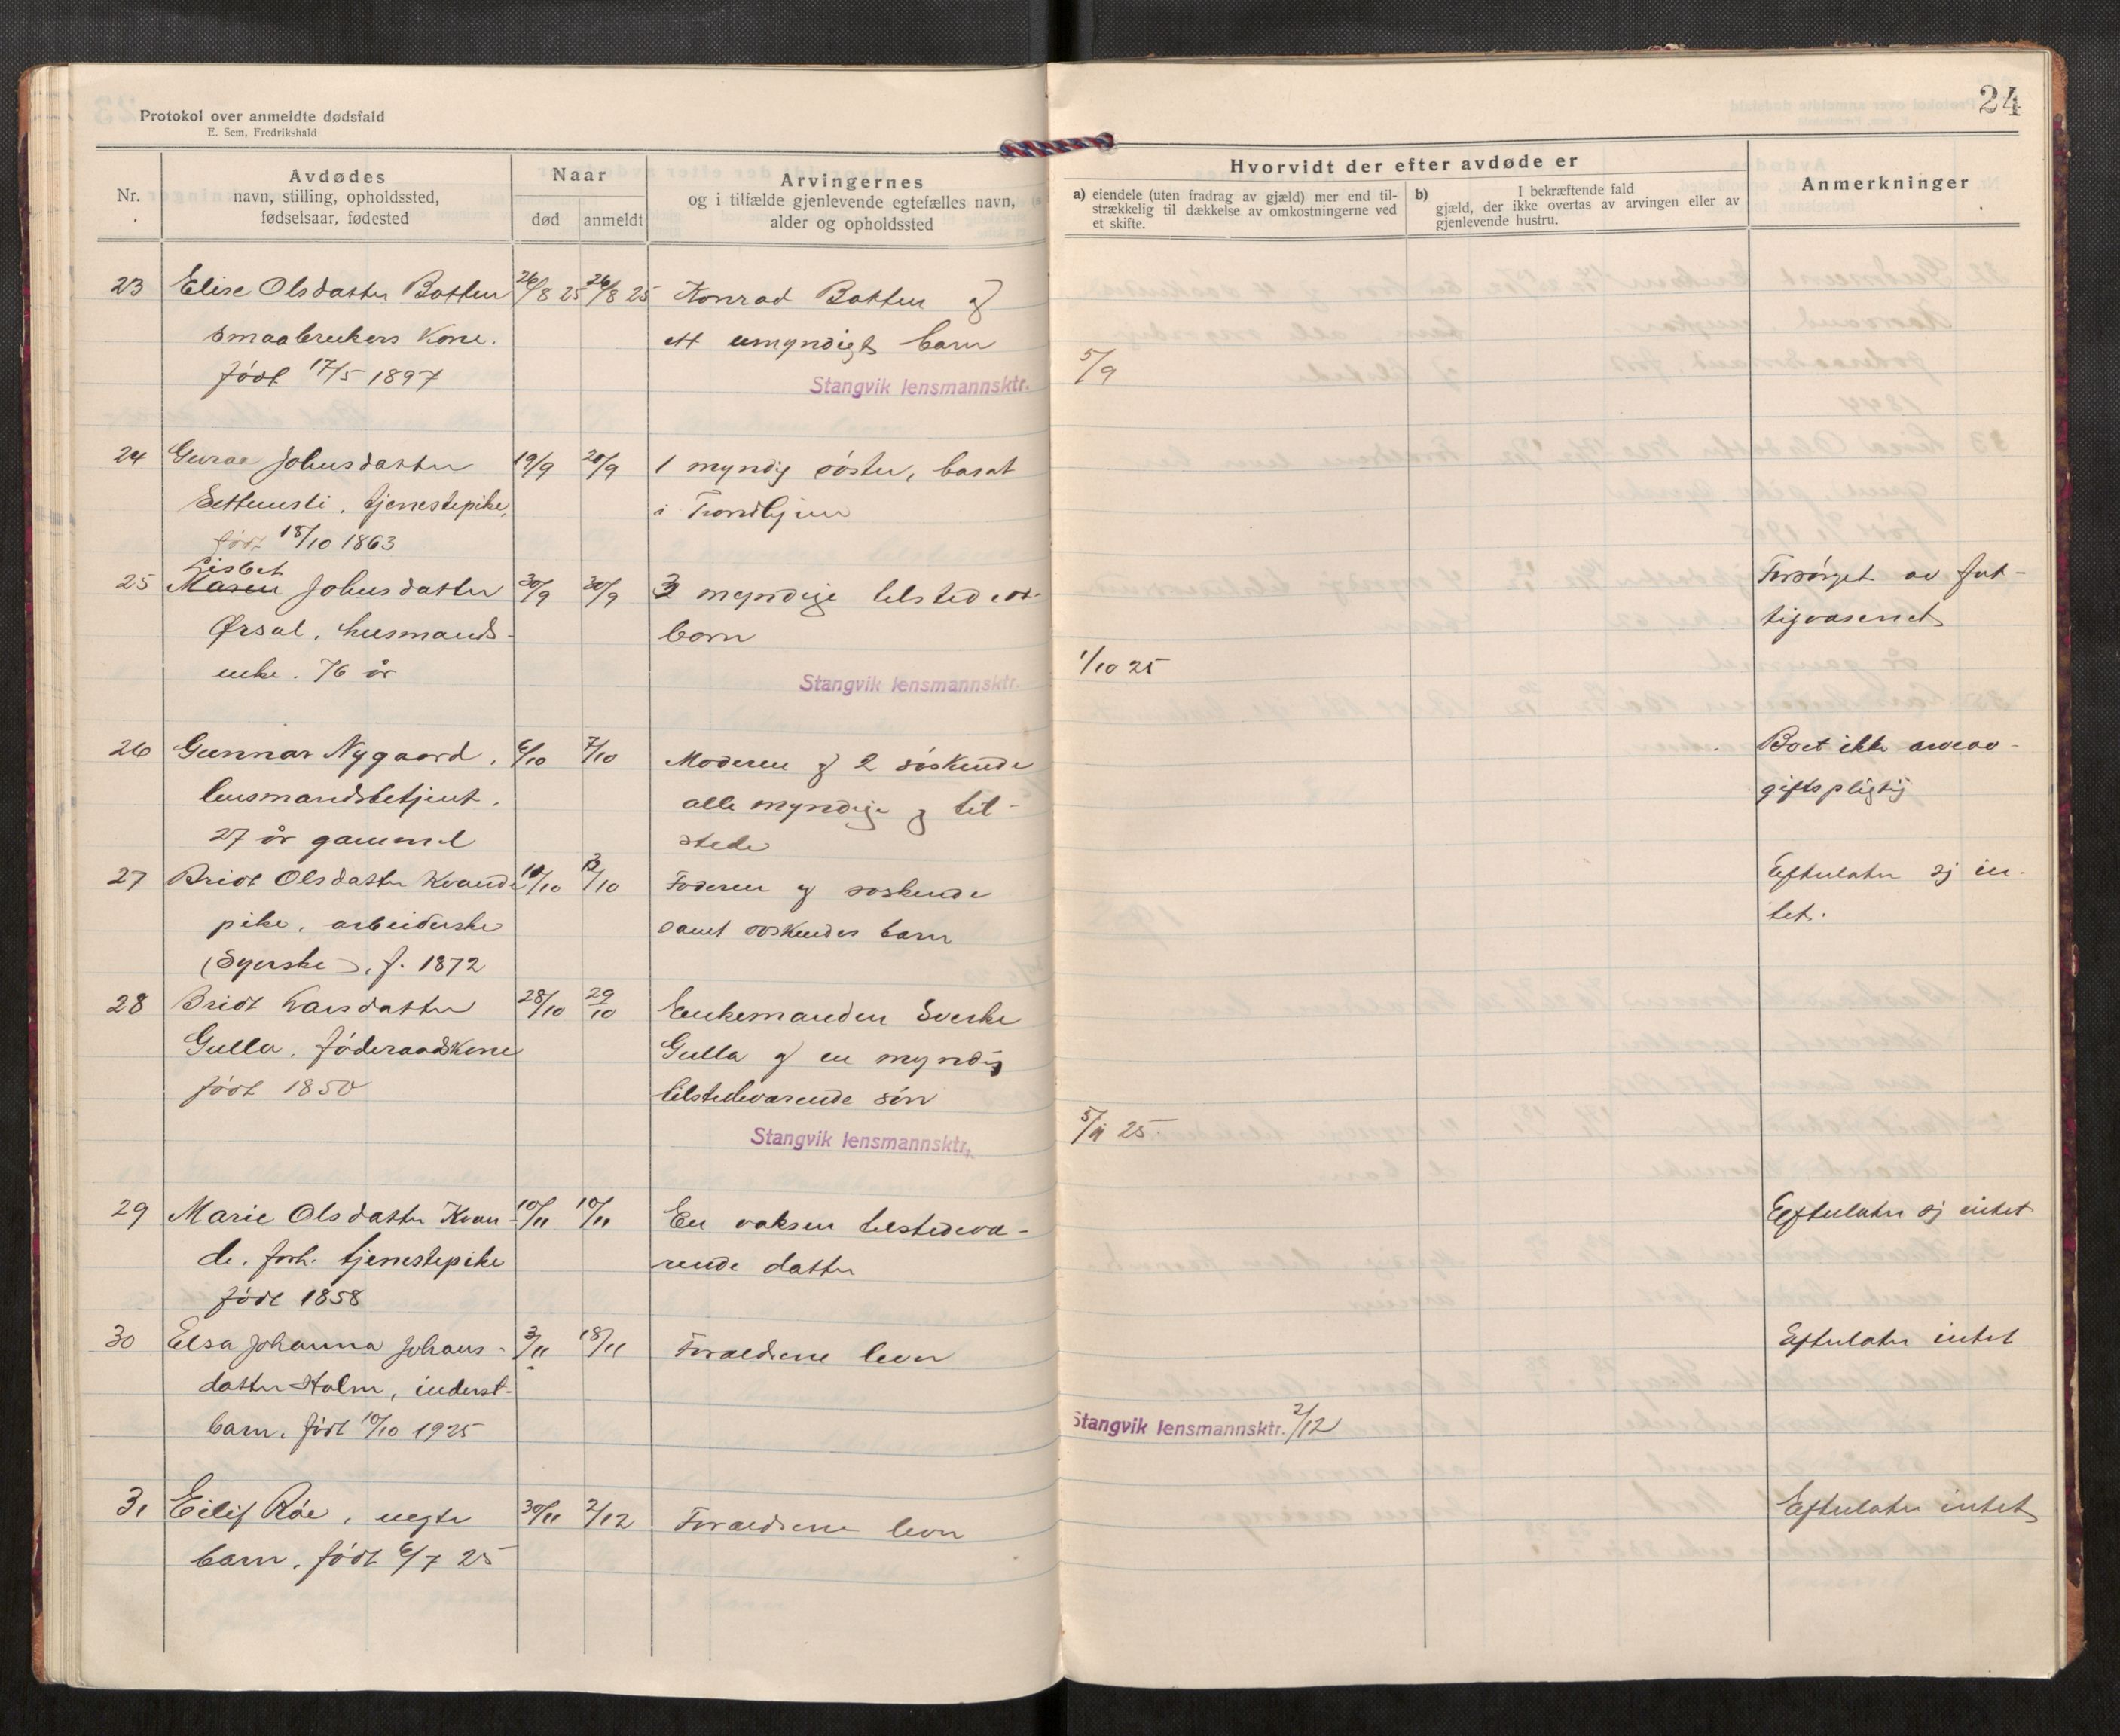 Protokol over anmeldte dødsfald
E. Sem, Fredrikshald
24
Nr.
Avdødes
navn, stilling, opholdssted,
fødselsaar, fødested
Naar
død
anmeldt
Arvingernes
og i tilfælde gjenlevende egtefælles navn,
alder og opholdssted
Hvorvidt der efter avdøde er
a) eiendele (uten fradrag av gjæld) mer end til-
strækkelig til dækkelse av omkostningerne ved
et skifte.
b) I bekræftende fald
gjæld, der ikke overtas av arvingen eller av
gjenlevende hustru.
Anmerkninger
23 Elise Olsdatter Botten 26/8 25 26/8 25 Konrad Botten og
smaabrukers kone. ett umyndigt barn
født 17/5 1897 Stangvik lensmannsktr. 5/9
24 Guraa Johnsdatter 19/9 20/9 1 myndig søster, bosat
tjenestepike, i Trondhjem
født 18/10 1863
Lisbet
25 Maren Johnsdatter 30/9 30/9 3 myndige tilstedev. Forsørget av fat-
Ørsal, husmands- born tigvæsenet
enke. 76 år Stangvik lensmannsktr. 1/10 25
26 Gunnar Nygaard, 6/10 7/10 Moderen og 2 søskende Boet ikke arveav-
lensmandsbetjent, alle myndige og til- giftspligtig
27 år gammel stede
27 Bridt Olsdatter Kvande 10/10 12/10 Faderen og søskende Efterlater sj in-
pike, arbeiderske samt søskendes barn tet.
(Syerske), f. 1872
28 Bridt Larsdatter 28/10 29/10 Enkemanden Sverke
Gulla, føderaadskone Gulla og en myndig
født 1850 tilstedeværende søn
Stangvik lensmannsktr. 5/11 25.
29 Marie Olsdatter Kvan- 10/11 10/11 En voksen tilstedevæ- Efterlater sj intet
de, forh. tjenestepike rende datter
født 1858
30 Elsa Johanna Johans- 3/11 18/11 Forældrene lever Efterlater intet
datter Holm, inderst-
barn, født 10/10 1925 Stangvik lensmannsktr. 2/12
31 Eilif Røe, uegte 30/11 2/12 Forældrene lever Efterlater intet
barn, født 6/7 25